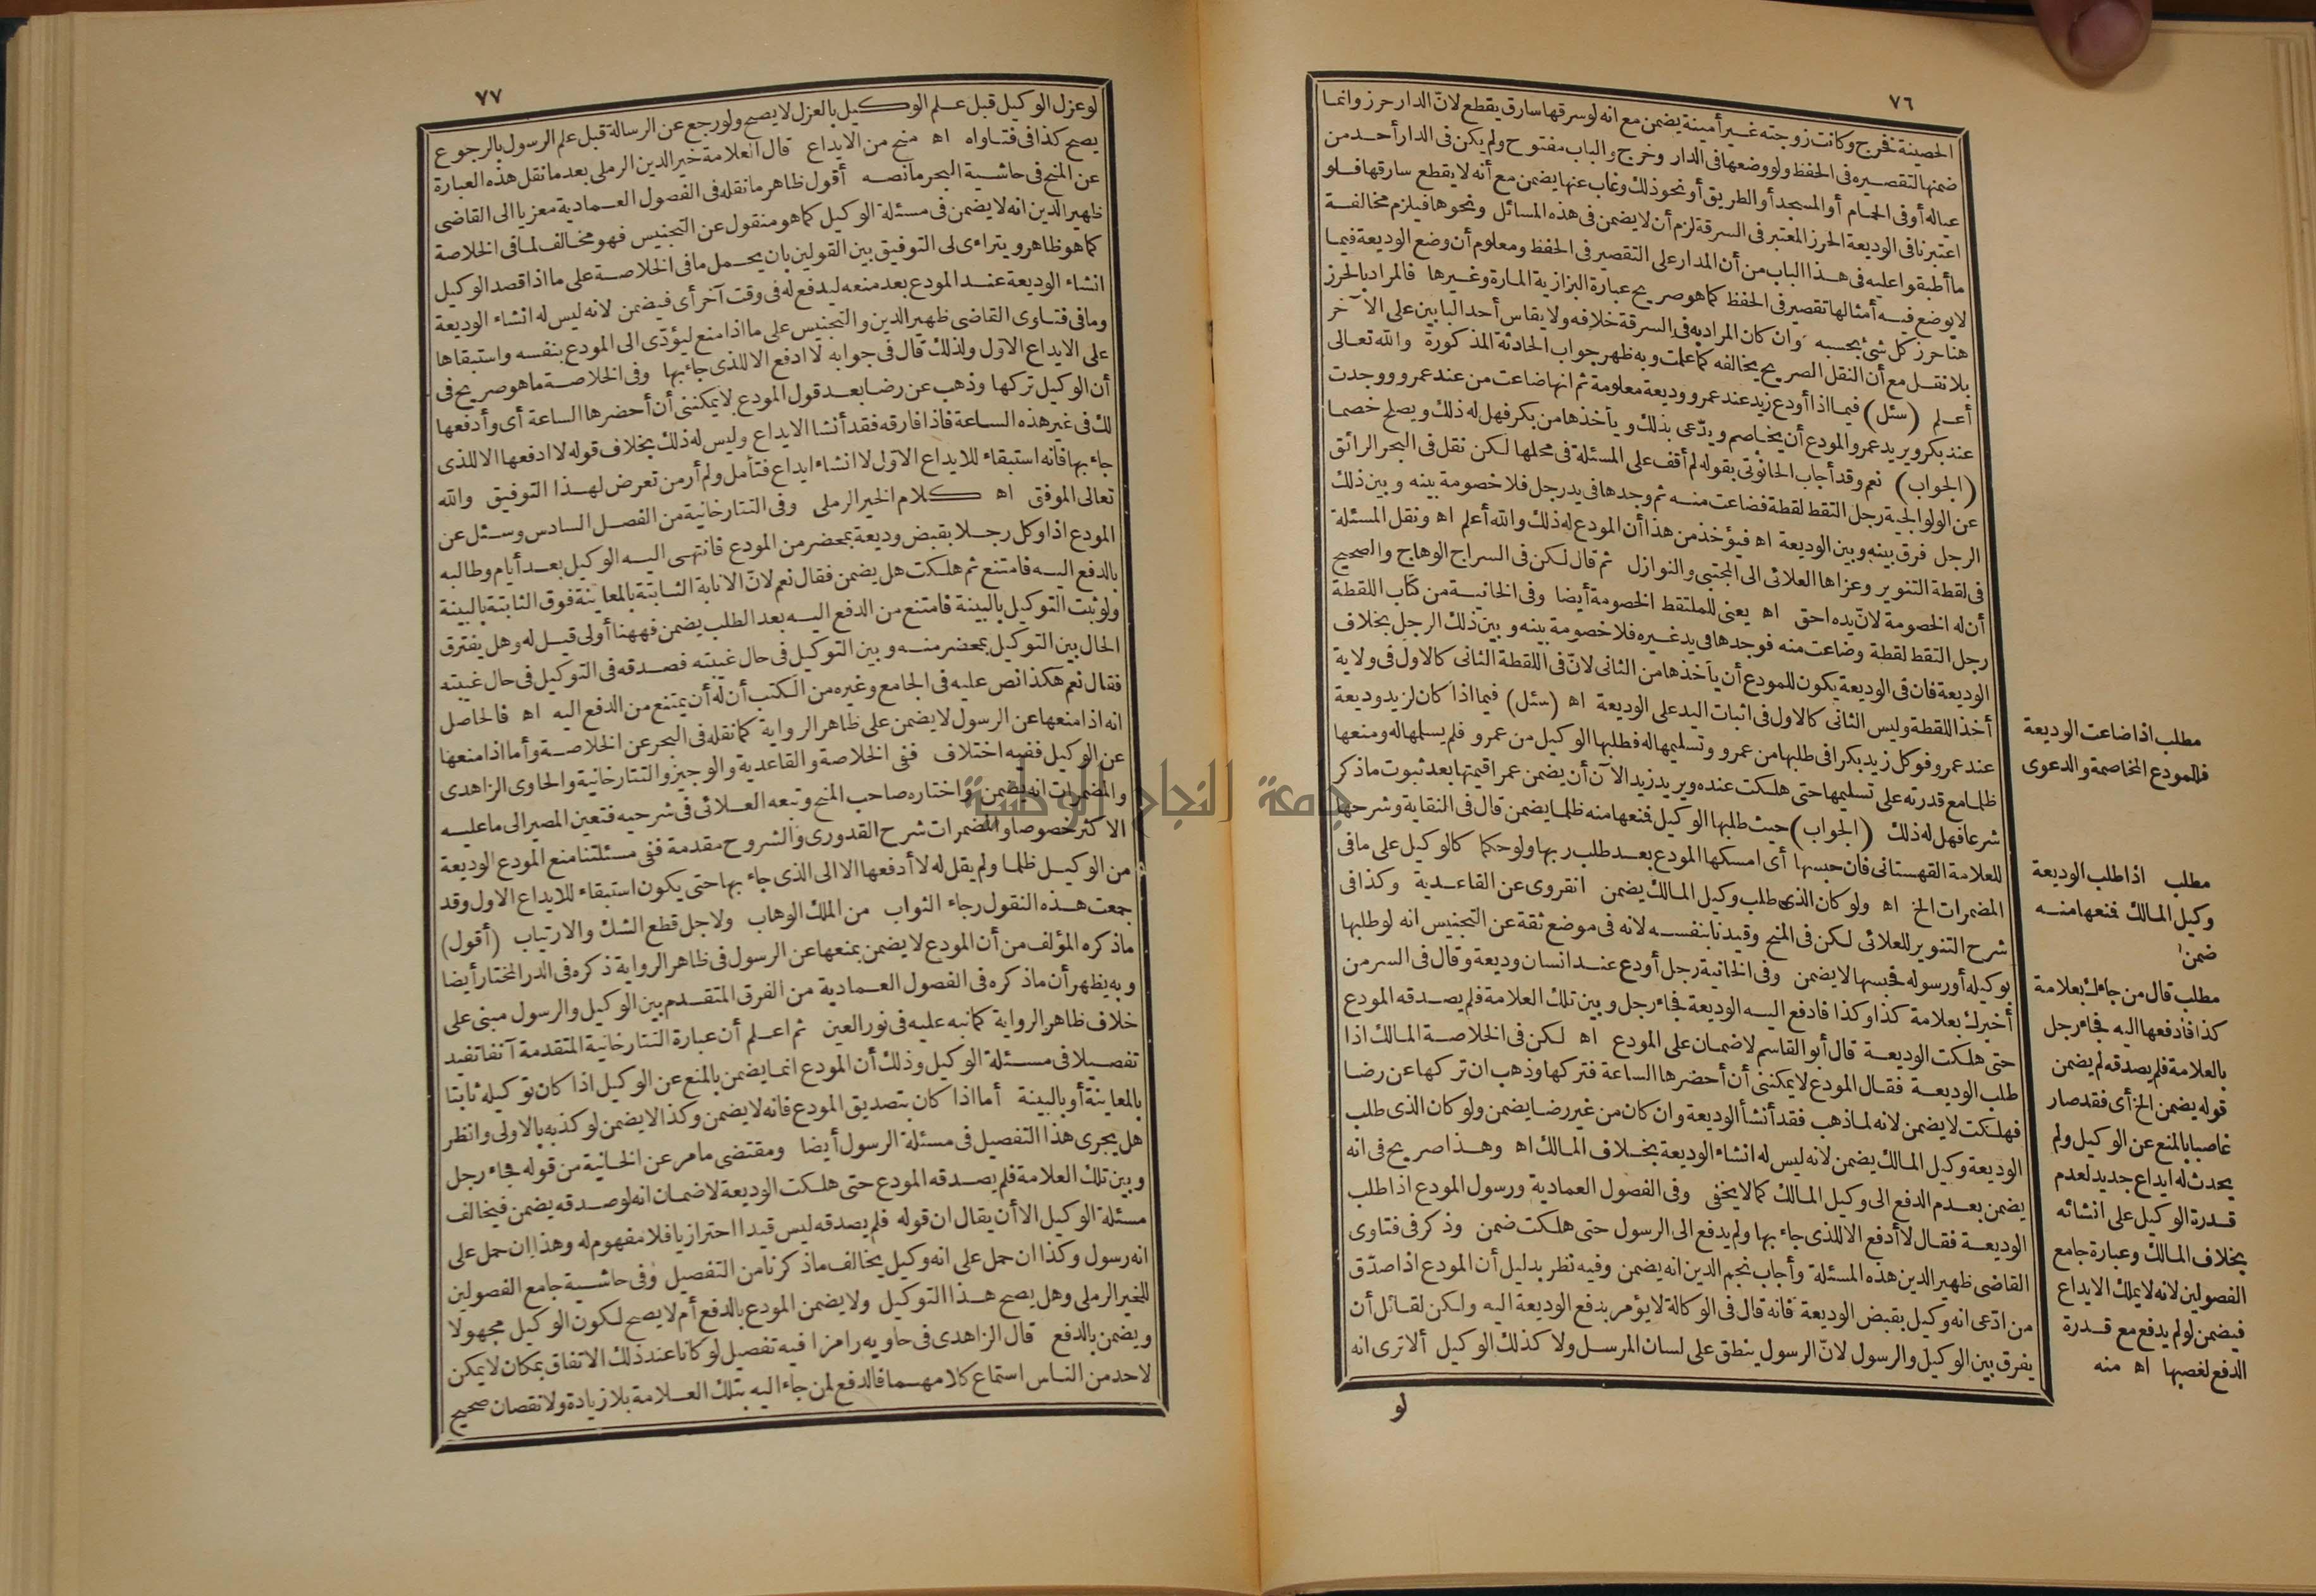 ٧٦
الحصينة فخرج وكانت زوجته غير أمينة يضمن مع انه لو سرقها سارق يقطع لانّ الدار حرز وانما
ضمنها لتقصيره فى الحفظ ولو وضعها فى الدار وخرج والباب مفتوح ولم يكن فى الدار أحد من
عياله أو فى الحمام أو المسجد أو الطريق أو نحو ذلك وغاب عنها يضمن مع أنه لا يقطع سارقها فلو
اعتبرنا فى الوديعة الحرز المعتبر فى السرقة لزم أن لا يضمن فى هذه المسائل ونحوها فيلزم مخالفة
ما أطبقوا عليه فى هذا الباب من أن المدار على التقصير فى الحفظ ومعلوم أن وضع الوديعة فيما
لا يوضع فيه أمثالها تقصير فى الحفظ كما هو صريح عبارة البزازية المارة وغيرها فالمراد بالحرز
هنا حرز كل شئ بحسبه وان كان المراد به فى السرقة خلافه ولا يقاس أحد البابين على الآخر
بلا نقل مع أن النقل الصريح يخالفه كما علمت وبه ظهر جواب الحادثة المذكورة والله تعالى
أعلم (سئل) فيما اذا أودع زيد عند عمرو وديعة معلومة ثم انها ضاعت من عند عمرو ووجدت
عند بكر ويريد عمرو المودع أن يخاصم ويدّعى بذلك ويأخذها من بكر فهل له ذلك ويصلح خصما
(الجواب) نعم وقد أجاب الحانوتى بقوله لم أقف على المسئلة فى محلها لكن نقل فى البحر الرائق
عن الولوالجية رجل التقط لقطة فضاعت منه ثم وجدها فى يد رجل فلا خصومة بينه وبين ذلك
الرجل فرق بينه وبين الوديعة اه فيؤخذ من هذا أن المودع له ذلك والله أعلم اه ونقل المسئلة
فى لقطة التنوير وعزاها العلائى الى المجتبى والنوازل ثم قال لكن فى السراج الوهاج والصحيح
أن له الخصومة لانّ يده احق اه يعنى للملتقط الخصومة أيضا وفى الخانية من كتاب اللقطة
رجل التقط لقطة وضاعت منه فوجدها فى يد غيره فلا خصومة بينه وبين ذلك الرجل بخلاف
الوديعة فان فى الوديعة يكون للمودع أن يأخذها من الثانى لانّ فى اللقطة الثانى كالاول فى ولاية
أخذ اللقطة وليس الثانى كالاول فى اثبات اليد على الوديعة اه (سئل) فيما اذا كان لزيد وديعة
عند عمرو فوكل زيد بكرا فى طلبها من عمرو وتسليمها له فطلبها الوكيل من عمرو فلم يسلمها له ومنعها
ظلما مع قدرته على تسليمها حتى هلكت عنده ويريد زيد الآن أن يضمن عمرا قيمتها بعد ثبوت ما ذكر
شرعا فهل له ذلك (الجواب) حيث طلبها الوكيل فمنعها منه ظلما يضمن قال فى النقاية وشرحها
للعلامة القهستانى فان حبسها أى امسكها المودع بعد طلب ربها ولو حكما كالوكيل على ما فى
المضمرات الخ اه ولو كان الذى طلب وكيل المالك يضمن انقروى عن القاعدية وكذا فى
شرح التنوير للعلائى لكن فى المنح وقيد نا بنفسه لانه فى موضع ثقة عن التجنيس انه لو طلبها
بوكيله أو رسوله فحبسها لا يضمن وفى الخانية رجل أودع عند انسان وديعة وقال فى السر من
أخبرك بعلامة كذا وكذا فادفع اليه الوديعة فجاء رجل وبين تلك العلامة فلم يصدقه المودع
حتى هلكت الوديعة قال أبو القاسم لا ضمان على المودع اه لكن فى الخلاصة المالك اذا
طلب الوديعة فقال المودع لا يمكننى أن أحضرها الساعة فتركها وذهب ان تركها عن رضا
فهلكت لا يضمن لانه لما ذهب فقد أنشأ الوديعة وان كان من غير رضا يضمن ولو كان الذى طلب
الوديعة وكيل المالك يضمن لانه ليس له انشاء الوديعة بخلاف المالك اه وهذا صريح فى انه
يضمن بعدم الدفع الى وكيل المالك كما لا يخفى وفى الفصول العمادية ورسول المودع اذا طلب
الوديعة فقال لا أدفع الا للذى جاء بها ولم يدفع الى الرسول حتى هلكت ضمن وذكر فى فتاوى
القاضى ظهير الدين هذه المسئلة وأجاب نجم الدين انه يضمن وفيه نظر بدليل أن المودع اذا صدّق
من ادّعى انه وكيل بقبض الوديعة فانه قال فى الوكالة لا يؤمر بدفع الوديعة اليه ولكن لقائل أن
يفرق بين الوكيل والرسول لانّ الرسول ينطق على لسان المرسل ولا كذلك الوكيل ألا ترى انه
لو
مطلب اذا ضاعت الوديعة
فللمودع المخاصمة والدعوى
مطلب اذا طلب الوديعة
وكيل المالك فمنعها منه
ضمن
مطلب قال من جاءك بعلامة
كذا فادفعها اليه فجاء رجل
بالعلامة فلم يصدقه لم يضمن
قوله يضمن الخ أى فقد صار
غاصبا بالمنع عن الوكيل ولم
يحدث له ايداع جديد لعدم
قدرة الوكيل على انشائه
بخلاف المالك وعبارة جامع
الفصولين لانه لا يملك الايداع
فيضمن لو لم يدفع مع قدرة
الدفع لغصبها اه منه
٧٧
لو عزل الوكيل قبل علم الوكيل بالعزل لا يصح ولو رجع عن الرسالة قبل علم الرسول بالرجوع
يصح كذا فى فتاواه اه منح من الايداع قال العلامة خير الدين الرملى بعد ما نقل هذه العبارة
عن المنح فى حاشية البحر ما نصه أقول ظاهر ما نقله فى الفصول العمادية معزيا الى القاضى
ظهير الدين انه لا يضمن فى مسئلة الوكيل كما هو منقول عن التجنيس فهو مخالف لما فى الخلاصة
كما هو ظاهر ويتراءى لى التوفيق بين القولين بان يحمل ما فى الخلاصة على ما اذا قصد الوكيل
انشاء الوديعة عند المودع بعد منعه ليدفع له فى وقت آخر أى فيضمن لانه ليس له انشاء الوديعة
وما فى فتاوى القاضى ظهير الدين والتجنيس على ما اذا منع ليؤدّى الى المودع بنفسه واستبقاها
على الايداع الاوّل ولذلك قال فى جوابه لا ادفع الا للذى جاء بها وفى الخلاصة ما هو صريح فى
أن الوكيل تركها وذهب عن رضا بعد قول المودع لا يمكننى أن أحضرها الساعة أى وأدفعها
لك فى غير هذه الساعة فاذا فارقه فقد أنشا الايداع وليس له ذلك بخلاف قوله لا ادفعها الا للذى
جاء بها فانه استبقاء للايداع الاوّل لا انشاء ايداع فتأمل ولم أر من تعرض لهذا التوفيق والله
تعالى الموفق اه كلام الخير الرملى وفى التتارخانية من الفصل السادس وسئل عن
المودع اذا وكل رجلا بقبض وديعة بمحضر من المودع فانتهى اليه الوكيل بعد أيام وطالبه
بالدفع اليه فامتنع ثم هلكت هل يضمن فقال نعم لانّ الانابة الثابتة بالمعاينة فوق الثابتة بالبينة
ولو ثبت التوكيل بالبينة فامتنع من الدفع اليه بعد الطلب يضمن فههنا أولى قيل له وهل يفترق
الحال بين التوكيل بمحضر منه وبين التوكيل فى حال غيبته فصدقه فى التوكيل فى حال غيبته
فقال نعم هكذا نص عليه فى الجامع وغيره من الكتب أن له أن يمتنع من الدفع اليه اه فالحاصل
انه اذا منعها عن الرسول لا يضمن على ظاهر الرواية كما نقله فى البحر عن الخلاصة وأما اذا منعها
عن الوكيل ففيه اختلاف ففى الخلاصة والقاعدية والوجيز والتتارخانية والحاوى الزاهدى
والمضمرات انه يضمن واختاره صاحب المنح وتبعه العلائى فى شرحيه فتعين المصير الى ما عليه
الاكثر خصوصا والمضمرات شرح القدورى والشروح مقدمة ففى مسئلتنا منع المودع الوديعة
من الوكيل ظلما ولم يقل له لا أدفعها الا الى الذى جاء بها حتى يكون استبقاء للايداع الاول وقد
جمعت هذه النقول رجاء الثواب من الملك الوهاب ولاجل قطع الشك والارتياب (أقول)
ما ذكره المؤلف من أن المودع لا يضمن بمنعها عن الرسول فى ظاهر الرواية ذكره فى الدر المختار أيضا
وبه يظهر أن ما ذكره فى الفصول العمادية من الفرق المتقدم بين الوكيل والرسول مبنى على
خلاف ظاهر الرواية كما نبه عليه فى نور العين ثم اعلم أن عبارة التتارخانية المتقدمة آنفا تفيد
تفصيلا فى مسئلة الوكيل وذلك أن المودع انما يضمن بالمنع عن الوكيل اذا كان توكيله ثابتا
بالمعاينة أو بالبينة أما اذا كان بتصديق المودع فانه لا يضمن وكذا لا يضمن لو كذبه بالاولى وانظر
هل يجرى هذا التفصيل فى مسئلة الرسول أيضا ومقتضى ما مر عن الخانية من قوله فجاء رجل
وبين تلك العلامة فلم يصدقه المودع حتى هلكت الوديعة لا ضمان انه لو صدقه يضمن فيخالف
مسئلة الوكيل الا أن يقال ان قوله فلم يصدقه ليس قيدا احترازيا فلا مفهوم له وهذا ان حمل على
انه رسول وكذا ان حمل على انه وكيل يخالف ما ذكرنا من التفصيل وفى حاشية جامع الفصولين
للخير الرملى وهل يصح هذا التوكيل ولا يضمن المودع بالدفع أم لا يصح لكون الوكيل مجهولا
ويضمن بالدفع قال الزاهدى فى حاويه رامزا فيه تفصيل لو كانا عند ذلك الاتفاق بمكان لا يمكن
لاحد من الناس استماع كلامهما فالدفع لمن جاء اليه بتلك العلامة بلا زيادة ولا نقصان صحيح
جامعة النجاح الوطنية